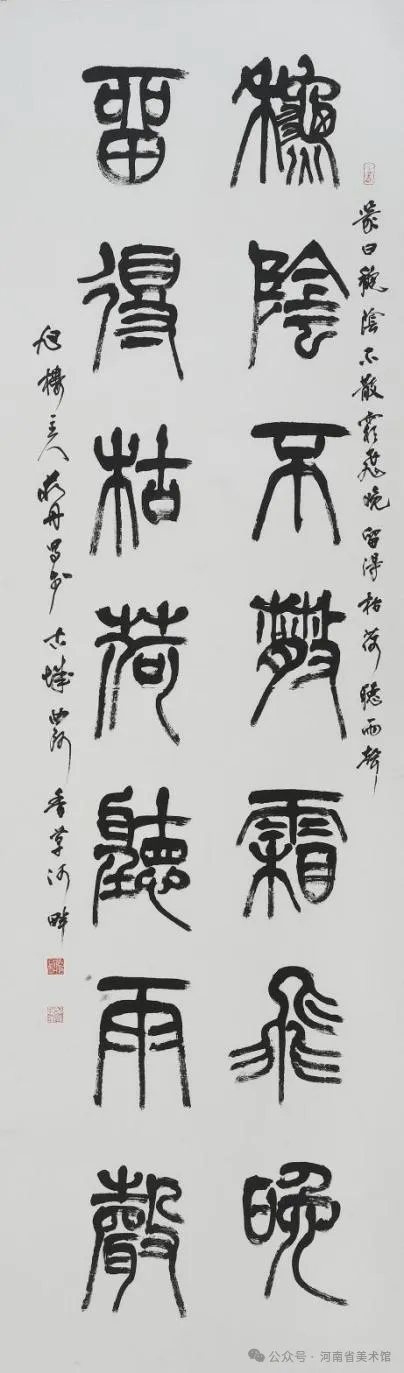 篆曰龝陰不散霜飛晚留得枯荷聽雨聲
龝陰不散霜飛晚
留得枯荷聽雨聲
主人丹寫於古城曲阿香草河畔
公众号 · 河南省美术馆